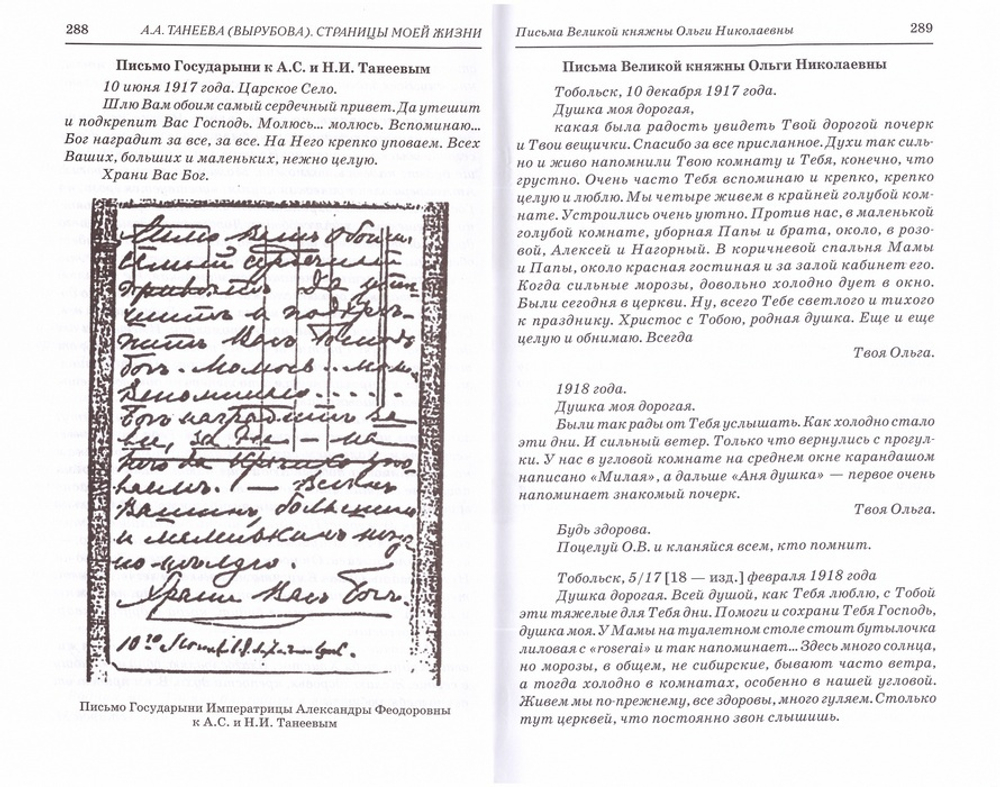 288
А.А. ТАНЕЕВА (ВЫРУБОВА). СТРАНИЦЫ МОЕЙ ЖИЗНИ
Письмо Государыни к А.С. и Н.И. Танеевым
10 июня 1917 года. Царское Село.
Шлю Вам обоим самый сердечный привет. Да утешит
и подкрепит Вас Господь. Молюсь... молюсь. Вспоминаю...
Бог наградит за все, за все. На Него крепко уповаем. Всех
Ваших, больших и маленьких, нежно целую.
Храни Вас Бог.
Шлю Вамъ обоимъ
самый сердечный
привѣтъ. Да утѣ-
шитъ и подкрѣ-
питъ Васъ Господь
Богъ. Молюсь...
Вспоминаю....
Богъ наградитъ за
все, за все — на
Него
— Всѣхъ
Вашихъ, большихъ
и маленькихъ
но цѣлую.
Храни Васъ Богъ.
10го
Письмо Государыни Императрицы Александры Феодоровны
к А.С. и Н.И. Танеевым
Письма Великой княжны Ольги Николаевны
289
Письма Великой княжны Ольги Николаевны
Тобольск, 10 декабря 1917 года.
Душка моя дорогая,
какая была радость увидеть Твой дорогой почерк
и Твои вещички. Спасибо за все присланное. Духи так силь-
но и живо напомнили Твою комнату и Тебя, конечно, что
грустно. Очень часто Тебя вспоминаю и крепко, крепко
целую и люблю. Мы четыре живем в крайней голубой ком-
нате. Устроились очень уютно. Против нас, в маленькой
голубой комнате, уборная Папы и брата, около, в розо-
вой, Алексей и Нагорный. В коричневой спальня Мамы
и Папы, около красная гостиная и за залой кабинет его.
Когда сильные морозы, довольно холодно дует в окно.
Были сегодня в церкви. Ну, всего Тебе светлого и тихого
к празднику. Христос с Тобою, родная душка. Еще и еще
целую и обнимаю. Всегда
Твоя Ольга.
1918 года.
Душка моя дорогая.
Были так рады от Тебя услышать. Как холодно стало
эти дни. И сильный ветер. Только что вернулись с прогул-
ки. У нас в угловой комнате на среднем окне карандашом
написано «Милая», а дальше «Аня душка» — первое очень
напоминает знакомый почерк.
Твоя Ольга.
Будь здорова.
Поцелуй О.В. и кланяйся всем, кто помнит.
Тобольск, 5/17 [18 — изд.] февраля 1918 года
Душка дорогая. Всей душой, как Тебя люблю, с Тобой
эти тяжелые для Тебя дни. Помоги и сохрани Тебя Господь,
душка моя. У Мамы на туалетном столе стоит бутылочка
лиловая с «roserai» и так напоминает... Здесь много солнца,
но морозы, в общем, не сибирские, бывают часто ветра,
а тогда холодно в комнатах, особенно в нашей угловой.
Живем мы по-прежнему, все здоровы, много гуляем. Столько
тут церквей, что постоянно звон слышишь.